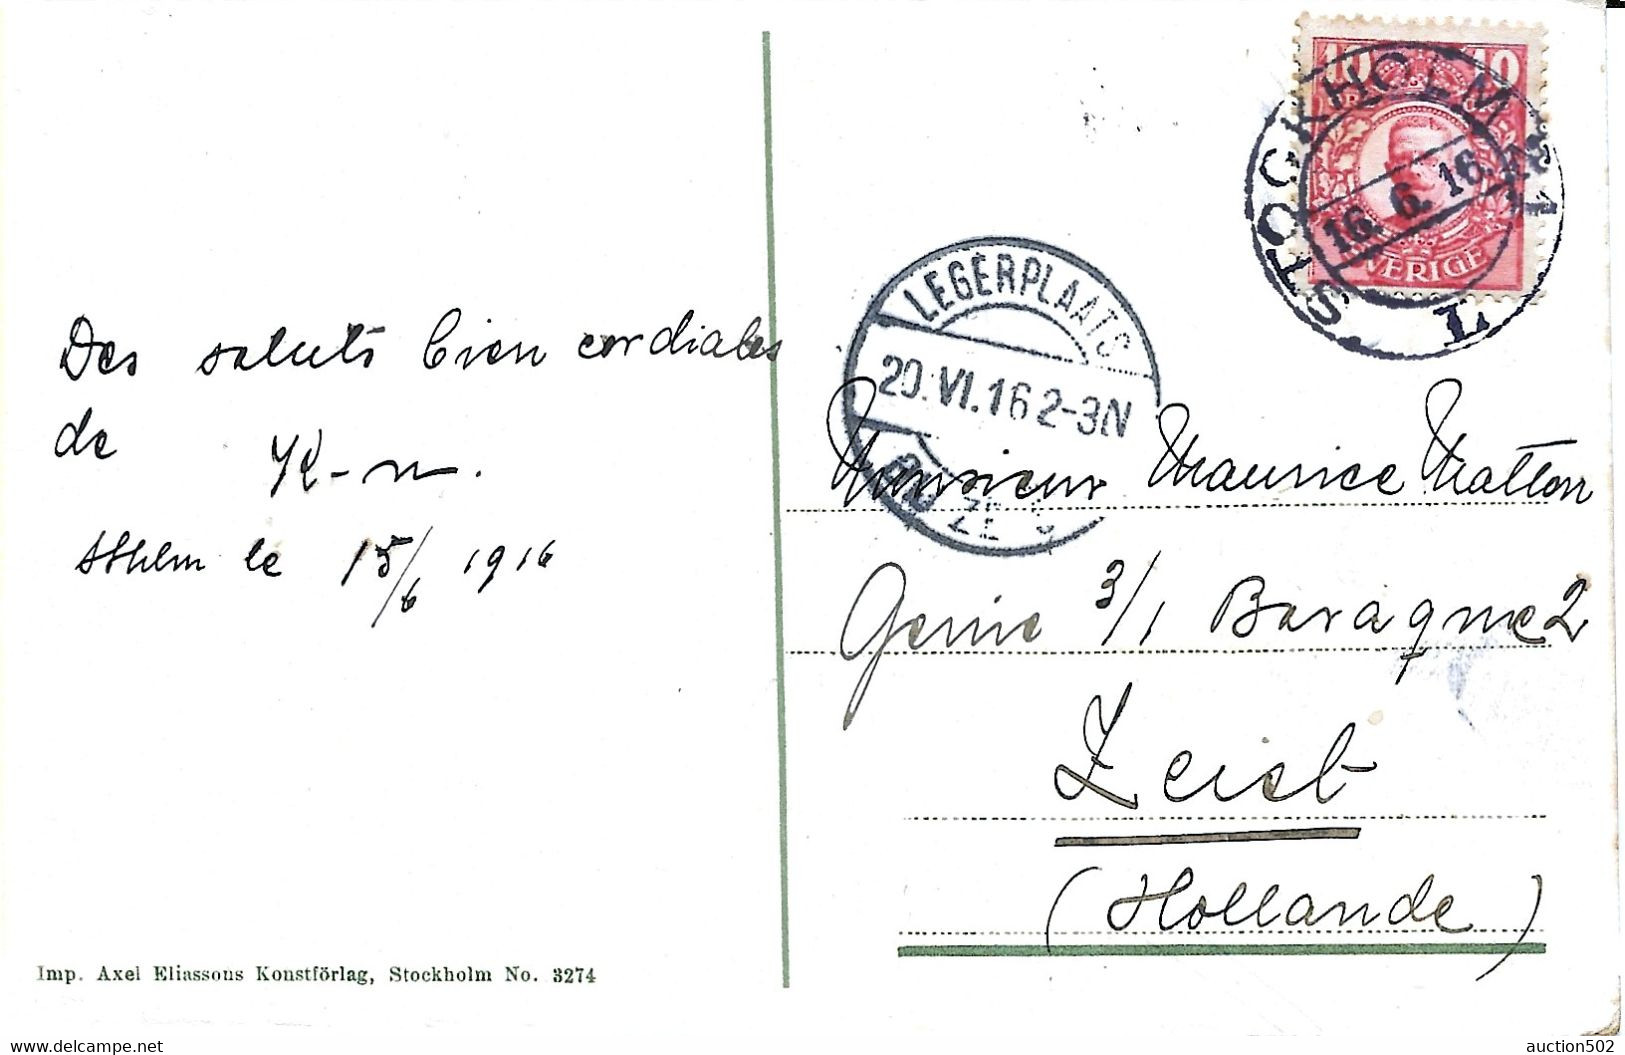 Des saluts bien cordiales
de K-n.
Sthlm le 15/6 1916
Imp. Axel Eliassons Konstförlag, Stockholm No. 3274
10 10
SVERIGE
STOCKHOLM 1
16. 6. 16.
L
LEGERPLAATS
20.VI.16 2-3N
ZEIS
Monsieur Maurice Matton
Genie 3/1 Baraque 2
Zeist
(Hollande)
www.delcampe.net
auction502